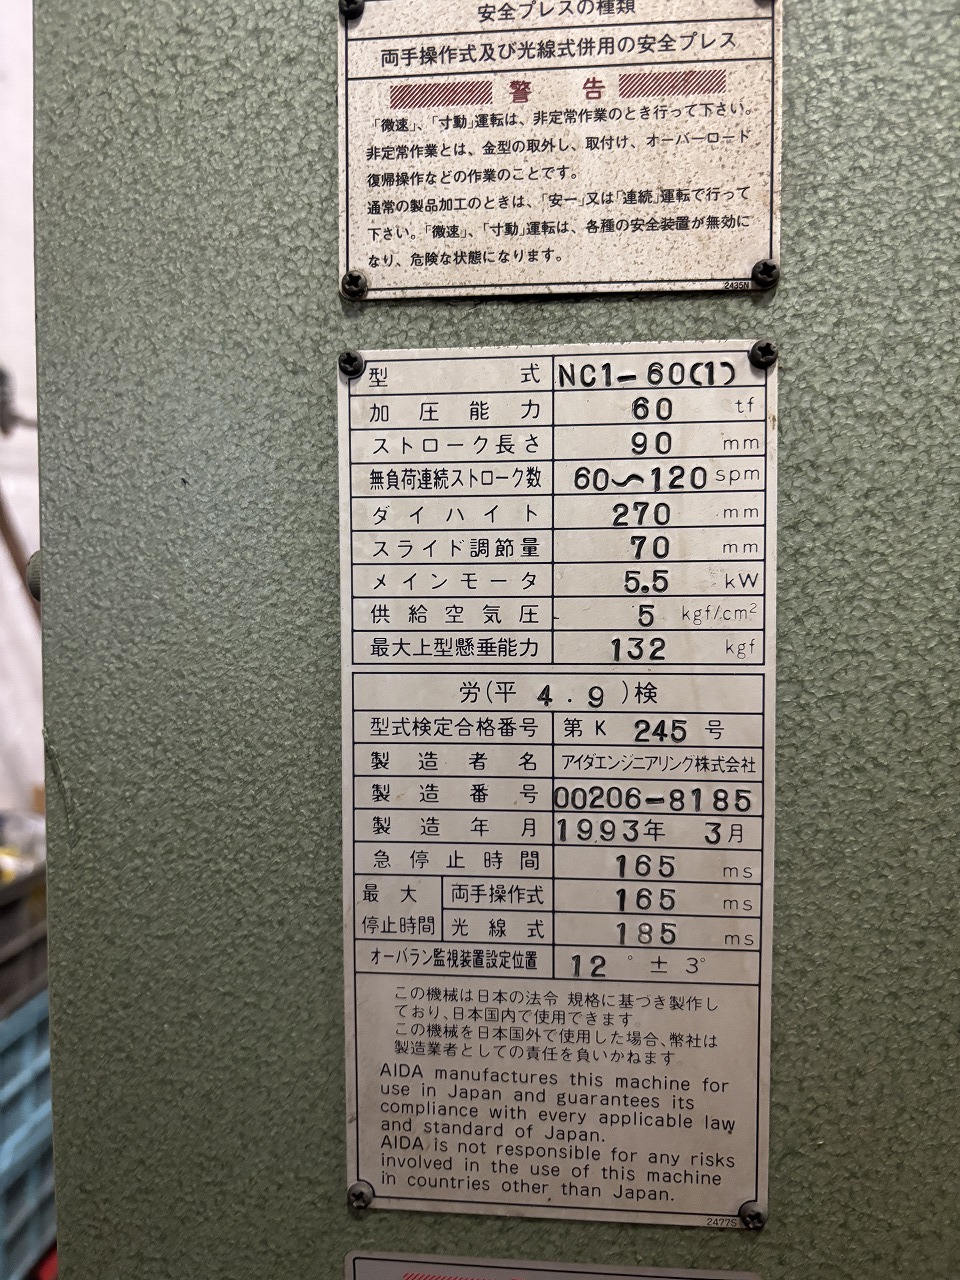 安全プレスの種類
両手操作式及び光線式併用の安全プレス
警 告
「微速」、「寸動」運転は、非定常作業のとき行って下さい。
非定常作業とは、金型の取外し、取付け、オーバーロード
復帰操作などの作業のことです。
通常の製品加工のときは、「安一」又は「連続」運転で行って
下さい。「微速」、「寸動」運転は、各種の安全装置が無効に
なり、危険な状態になります。
2435N
型式 NC1-60(1)
加圧能力 60 tf
ストローク長さ 90 mm
無負荷連続ストローク数 60〜120 spm
ダイハイト 270 mm
スライド調節量 70 mm
メインモータ 5.5 kW
供給空気圧 5 kgf/cm²
最大上型懸垂能力 132 kgf
労(平 4.9)検
型式検定合格番号 第K 245 号
製造者名 アイダエンジニアリング株式会社
製造番号 00206-8185
製造年月 1993年 3月
急停止時間 165 ms
最大停止時間 両手操作式 165 ms
光線式 185 ms
オーバラン監視装置設定位置 12° ± 3°
この機械は日本の法令 規格に基づき製作し
ており、日本国内で使用できます。
この機械を日本国外で使用した場合、弊社は
製造業者としての責任を負いかねます
AIDA manufactures this machine for
use in Japan and guarantees its
compliance with every applicable law
and standard of Japan.
AIDA is not responsible for any risks
involved in the use of this machine
in countries other than Japan.
2477S